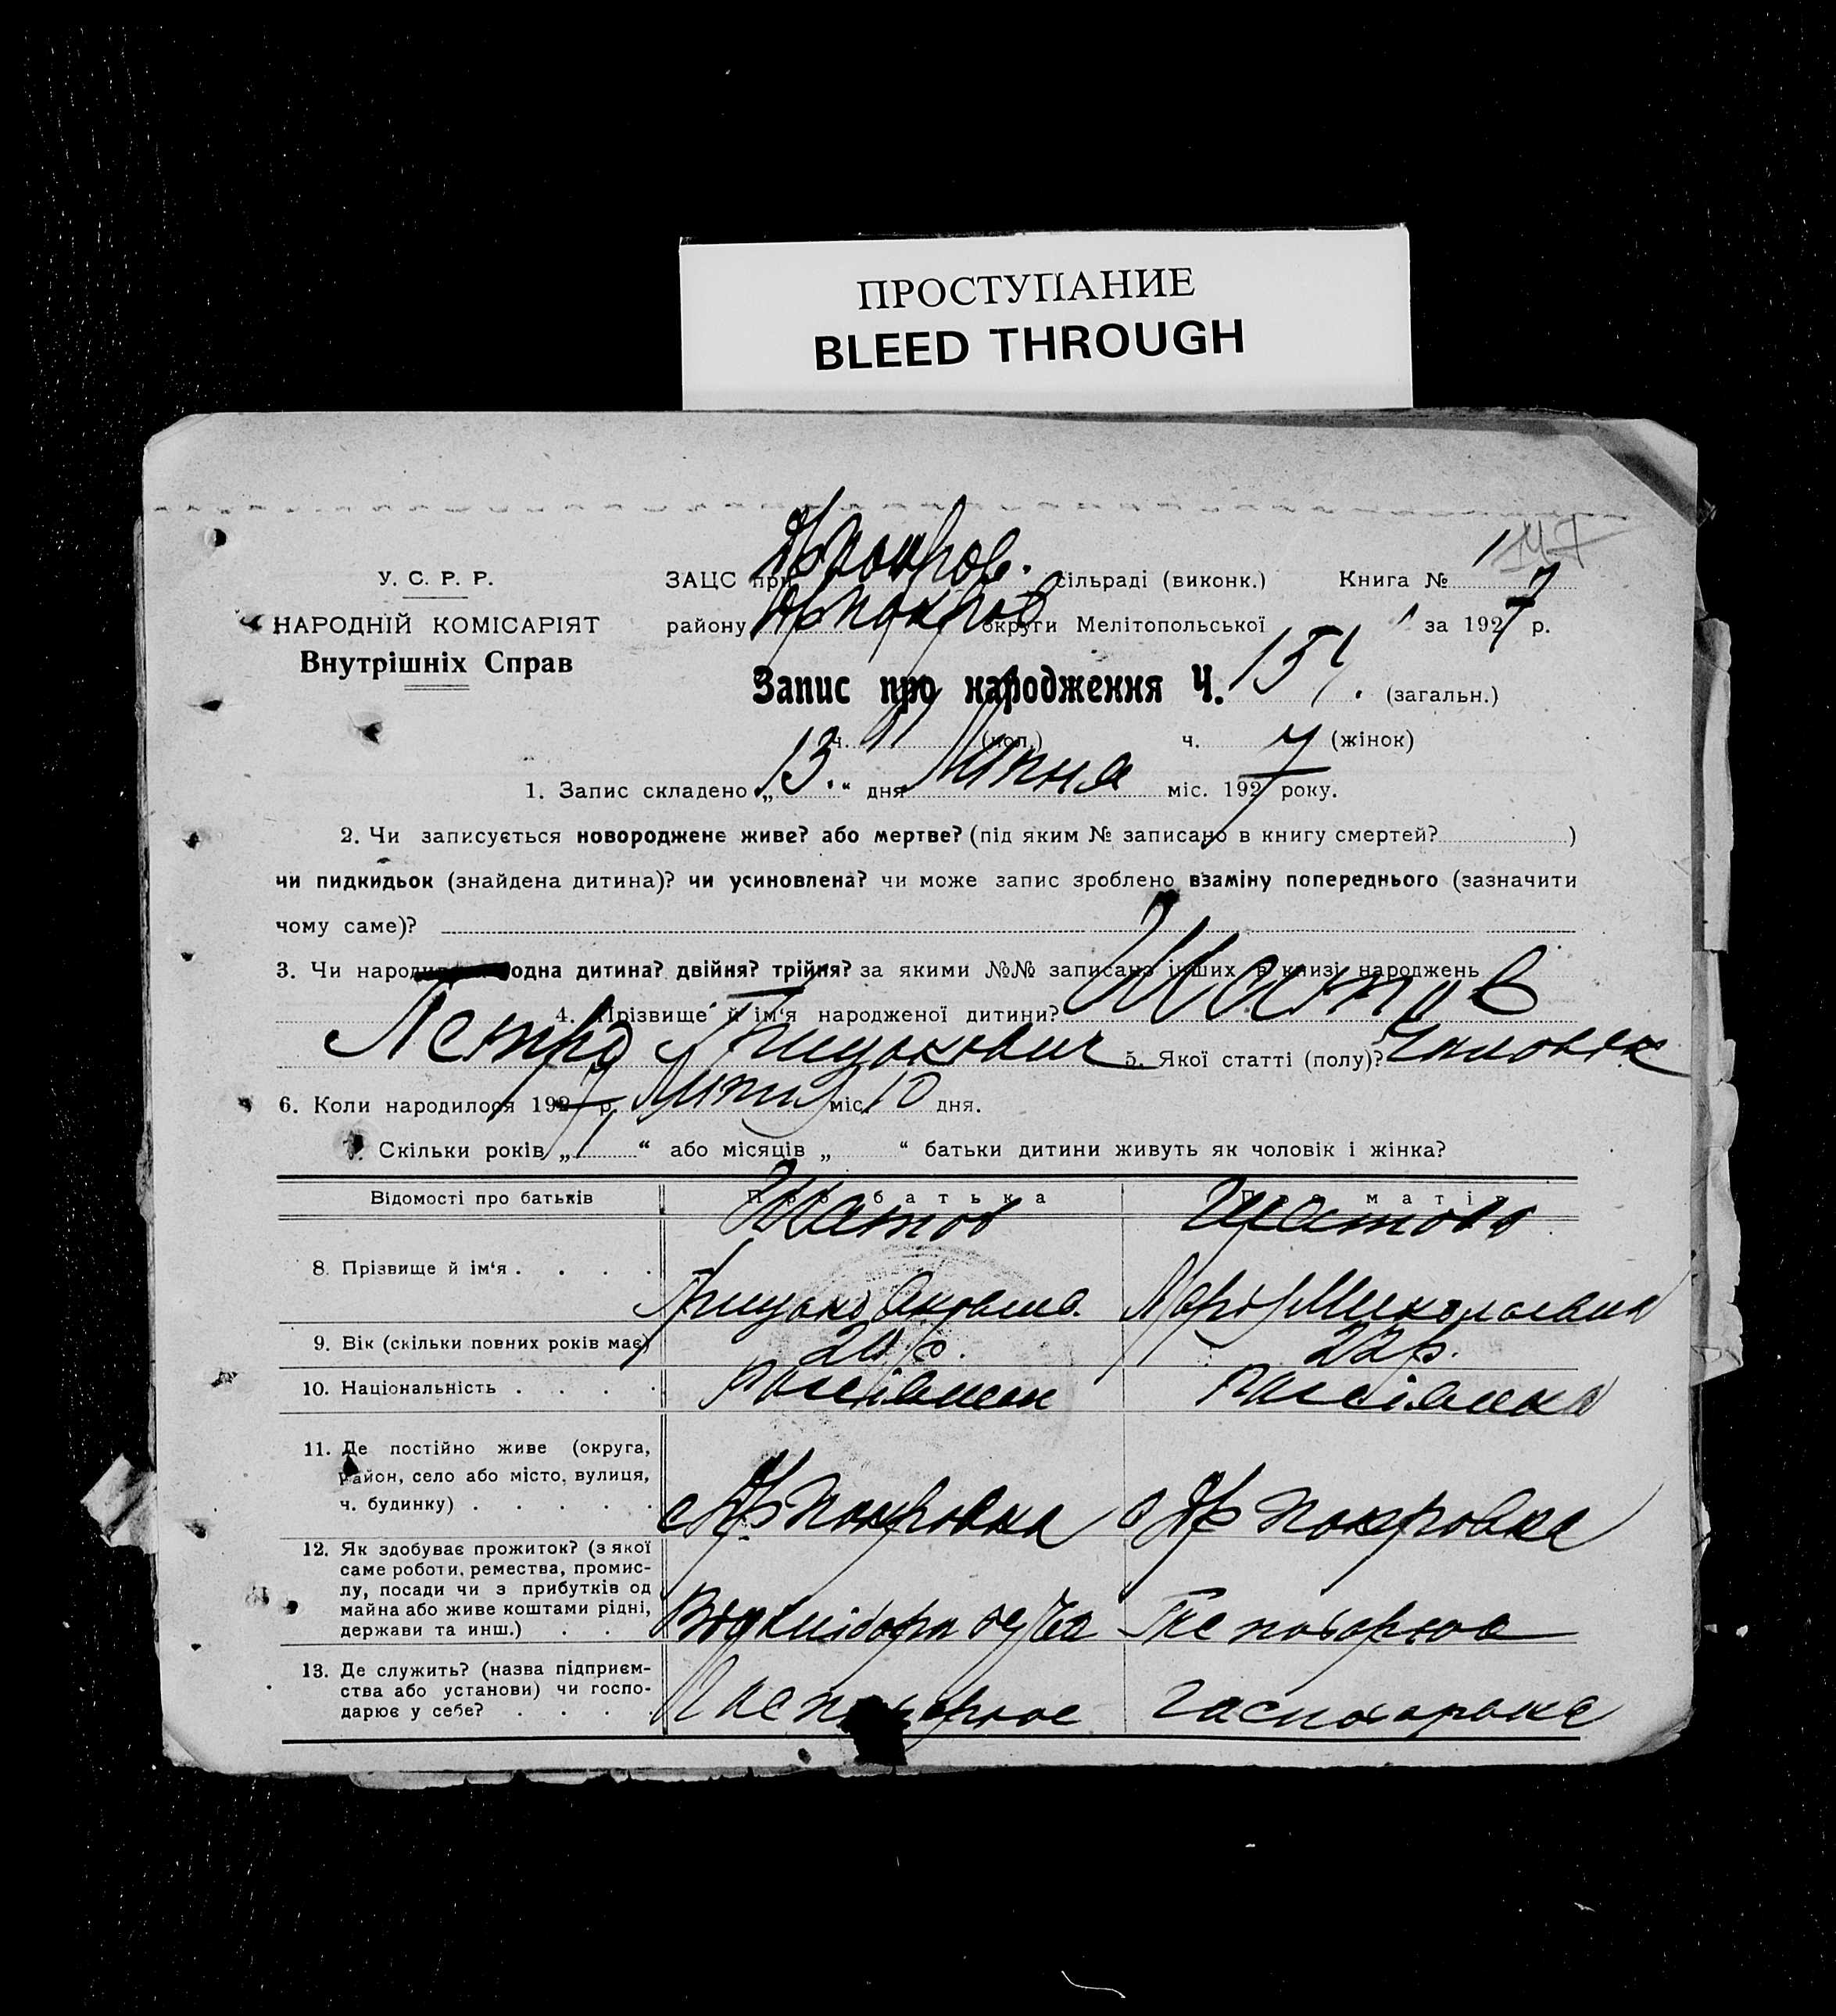 ПРОСТУПАНИЕ
BLEED THROUGH
У. С. Р. Р.
НАРОДНІЙ КОМІСАРІЯТ
Внутрішніх Справ
ЗАЦС при сільраді (виконк.) Книга № 1
району округи Мелітопольської за 1927 р.
Запис про народження Ч. (загальн.)
ч. (чол.) ч. 7 (жінок)
1. Запис складено „13.“ дня Липня міс. 1927 року.
2. Чи записується новороджене живе? або мертве? (під яким № записано в книгу смертей? )
чи пидкидьок (знайдена дитина)? чи усиновлена? чи може запис зроблено взаміну попереднього (зазначити
чому саме)?
3. Чи народи одна дитина? двійня? трійня? за якими №№ записано інших в книзі народжень
4. Прізвище й ім‘я народженої дитини? Шатов
Петро Грицькович 5. Якої статті (полу)? Чоловік
6. Коли народилося 1927 р. Липня міс. 10 дня.
7. Скільки років „1“ або місяців „ “ батьки дитини живуть як чоловік і жінка?
Відомості про батьків Про батька Про матір
Шатов Шатова
8. Прізвище й ім‘я . . . .
Грицько Марія Миколаевна
9. Вік (скільки повних років має) 22 р.
10. Національність . . . .
11. Де постійно живе (округа,
район, село або місто, вулиця,
ч. будинку) . . . . . Покровка Покровка
12. Як здобуває прожиток? (з якої
саме роботи, ремества, промис-
лу, посади чи з прибутків од
майна або живе коштами рідні,
держави та инш.) . . .
13. Де служить? (назва підприєм-
ства або установи) чи госпо-
дарює у себе? . . . .